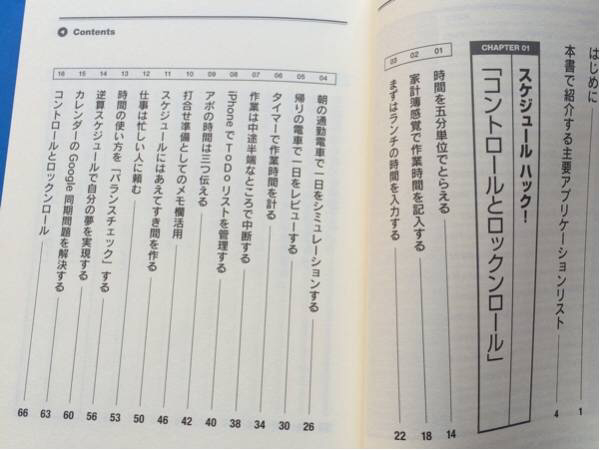 はじめに 1
本書で紹介する主要アプリケーションリスト 4
CHAPTER 01
スケジュール ハック!
「コントロールとロックンロール」
01 時間を五分単位でとらえる 14
02 家計簿感覚で作業時間を記入する 18
03 まずはランチの時間を入力する 22
Contents
04 朝の通勤電車で一日をシミュレーションする 26
05 帰りの電車で一日をレビューする 30
06 タイマーで作業時間を計る 34
07 作業は中途半端なところで中断する 38
08 iPhoneでToDoリストを管理する 40
09 アポの時間は三つ伝える 42
10 打合せ準備としてのメモ欄活用 46
11 スケジュールにはあえてすき間を作る 50
12 仕事は忙しい人に頼む 53
13 時間の使い方を「バランスチェック」する 56
14 逆算スケジュールで自分の夢を実現する 60
15 カレンダーのGoogle同期問題を解決する 63
16 コントロールとロックンロール 66